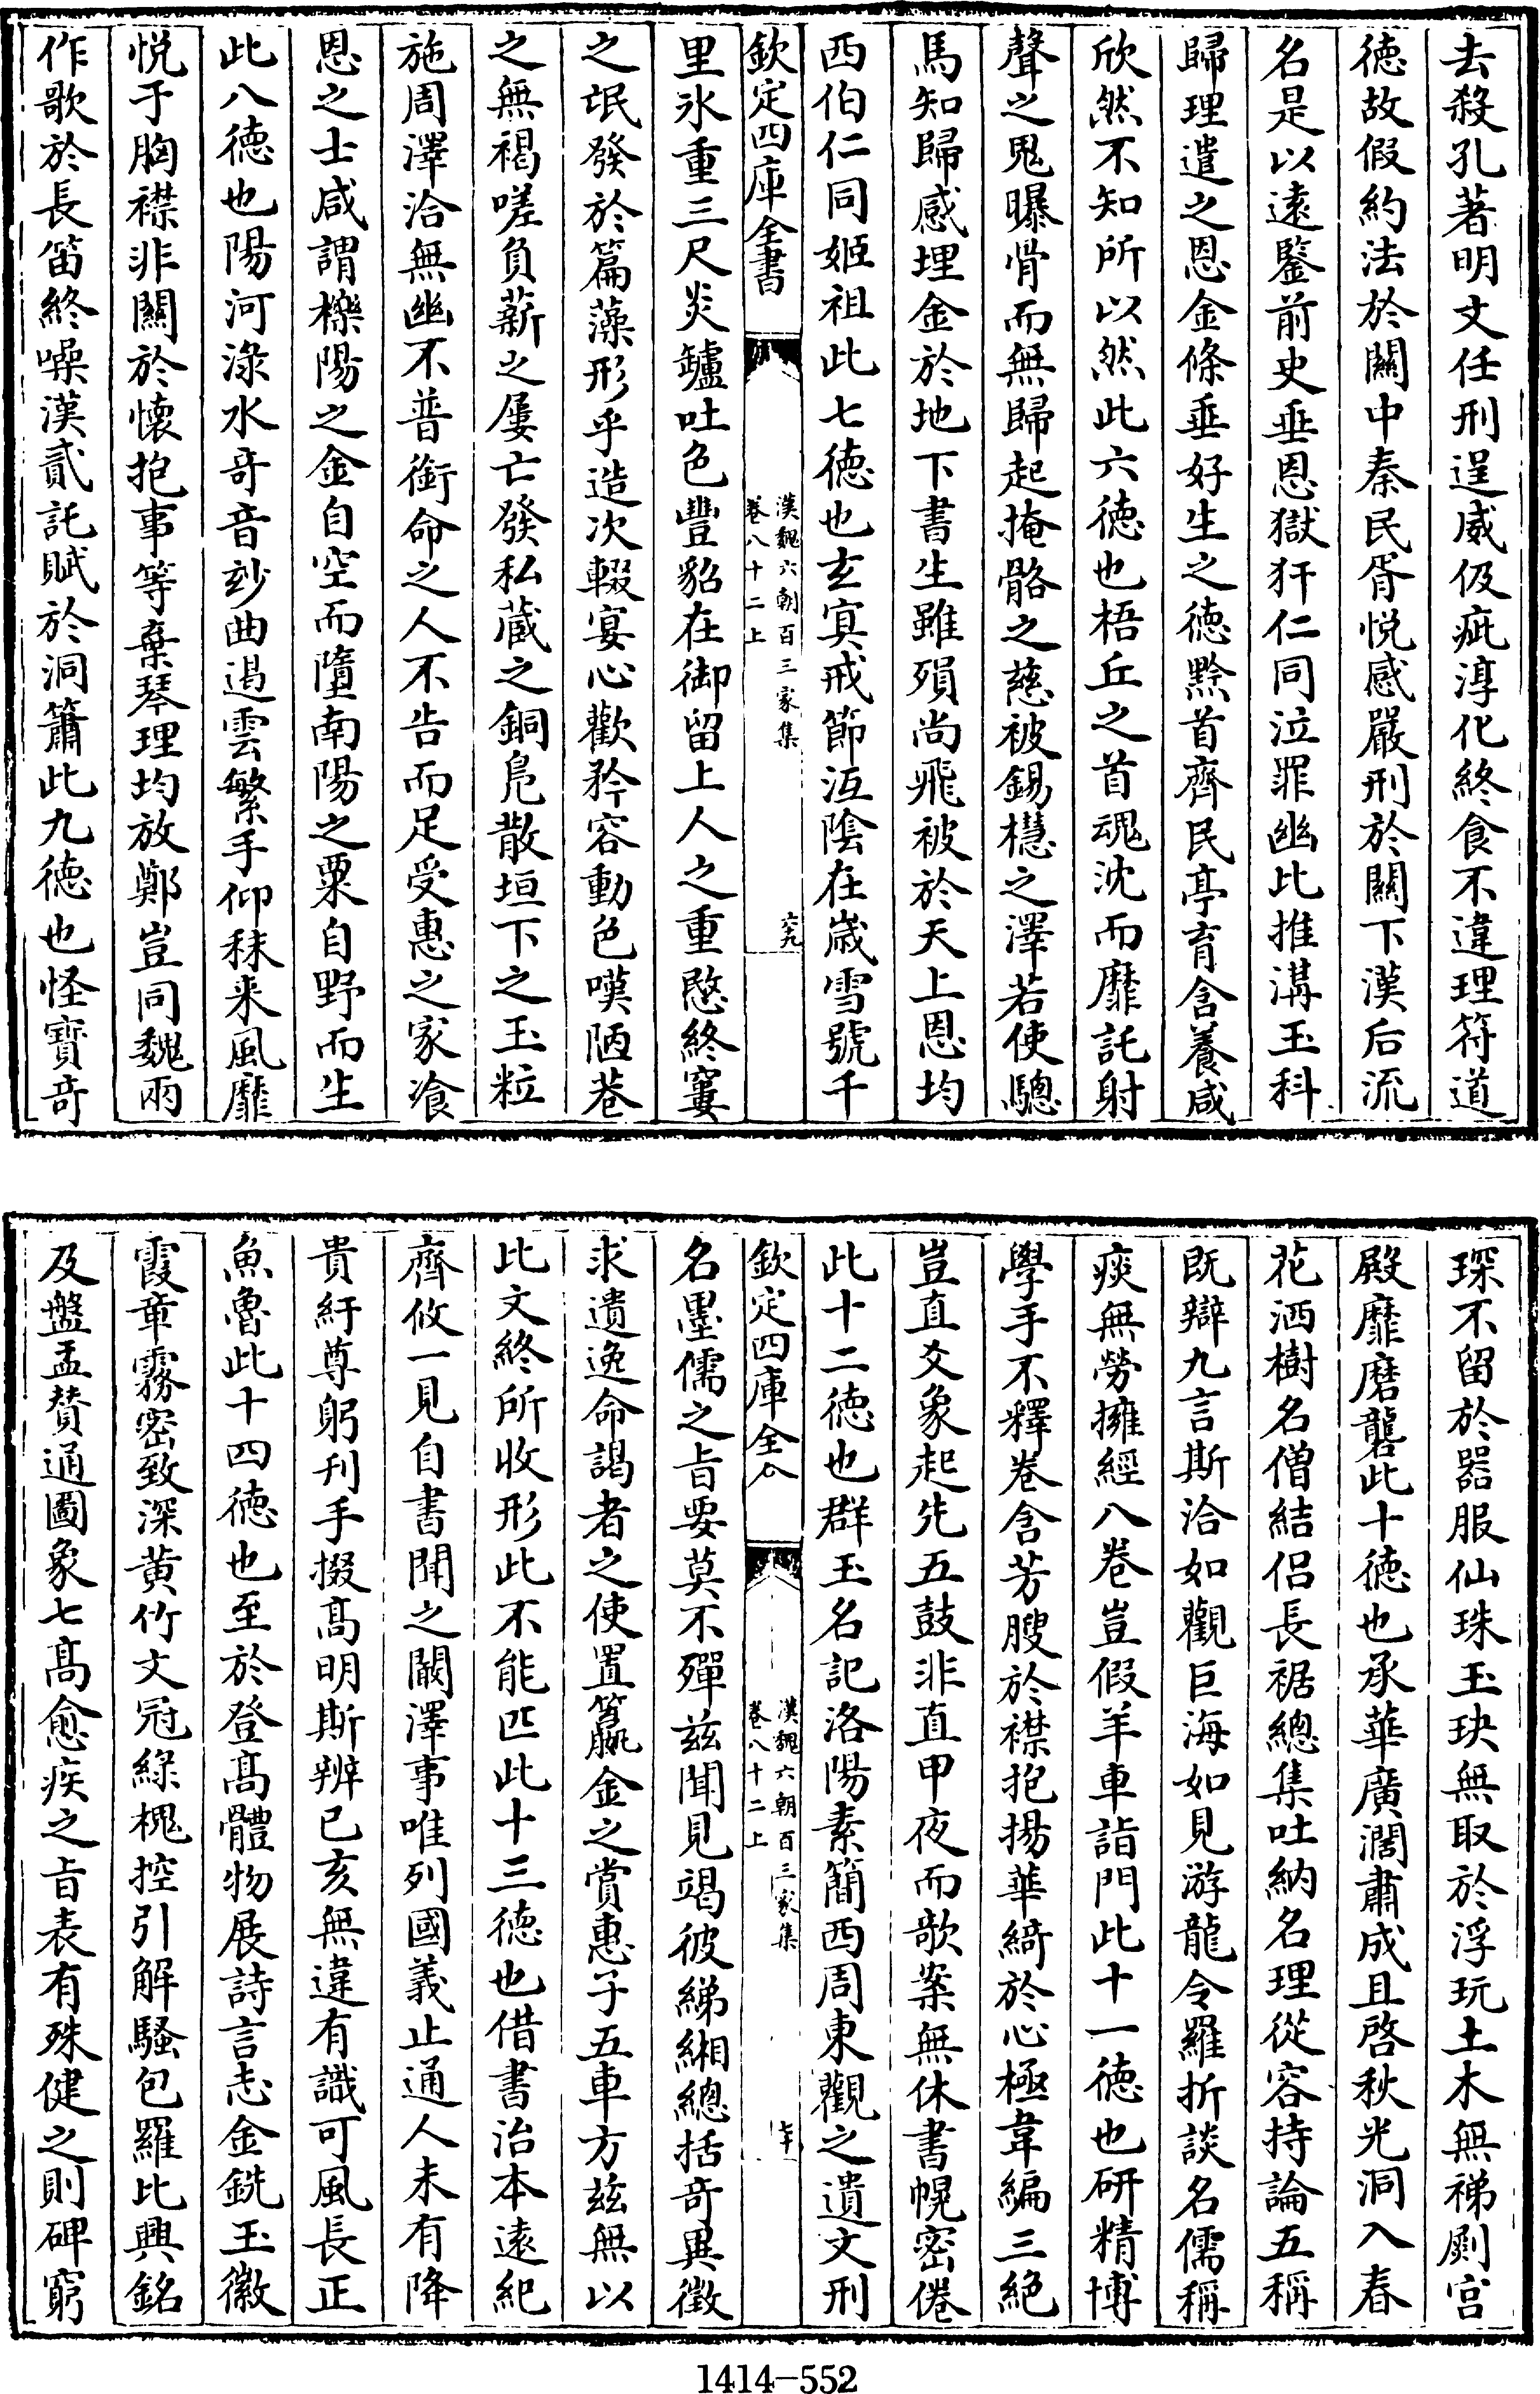 去殺孔著明文任刑逞威伋疵淳化終食不違理符道
徳故假約法於關中秦民胥悦感嚴刑於關下漢后流
名是以逺鑒前史垂恩獄犴仁同泣罪幽比推溝玉科
歸理遣之恩金條垂好生之徳黔首齊民亭育含養咸
欣然不知所以然此六徳也梧丘之首魂沈而靡託射
聲之鬼曝骨而無歸起掩骼之慈被錫槥之澤若使驄
馬知歸感埋金於地下書生雖殞尚飛被於天上恩均
西伯仁同姬祖此七徳也玄㝠戒節沍陰在嵗雪號千
欽定四庫全書
漢魏六朝百三家集
卷八十二上
六九
里氷重三尺炎鑪吐色豐貂在御留上人之重愍終窶
之氓發於篇藻形乎造次輟宴心歡矜容動色嘆陋巷
之無褐嗟負薪之屢亡發私藏之銅鳬散垣下之玉粒
施周澤洽無幽不普銜命之人不告而足受惠之家飡
恩之士咸謂櫟陽之金自空而墮南陽之粟自野而生
此八徳也陽河渌水竒音玅曲遏雲繁手仰秣来風靡
悦于胸襟非關於懐抱事等棄琴理均放鄭豈同魏兩
作歌於長笛終噪漢貳託賦於洞簫此九徳也怪寳竒
琛不留於器服仙珠玉玦無取於浮玩土木無祶劂宫
殿靡磨礱此十徳也承華廣濶肅成且啓秋光洞入春
花洒樹名僧結侣長裾總集吐納名理從容持論五稱
既辯九言斯洽如觀巨海如見游龍令羅折談名儒稱
疲無勞擁經八卷豈假羊車詣門此十一徳也研精博
學手不釋卷含芳腴於襟抱揚華綺於心極韋編三絶
豈直爻象起先五鼓非直甲夜而欹案無休書幌密倦
此十二徳也群玉名記洛陽素簡西周東觀之遺文刑
欽定四庫全書
漢魏六朝百三家集
卷八十二上
七十
名墨儒之㫖要莫不殫兹聞見竭彼綈緗總括竒異徴
求遺逸命謁者之使置籯金之賞惠子五車方兹無以
此文終所收形此不能匹此十三徳也借書治本逺紀
齊攸一見自書聞之闞澤事唯列國義止通人未有降
貴紆尊躬刋手掇髙明斯辨己亥無違有識可風長正
魚魯此十四徳也至於登髙體物展詩言志金銑玉徽
霞章霧密致深黄竹文冠緑槐控引解騷包羅比興銘
及盤盂賛通圖象七髙愈疾之㫖表有殊健之則碑窮
1414-552